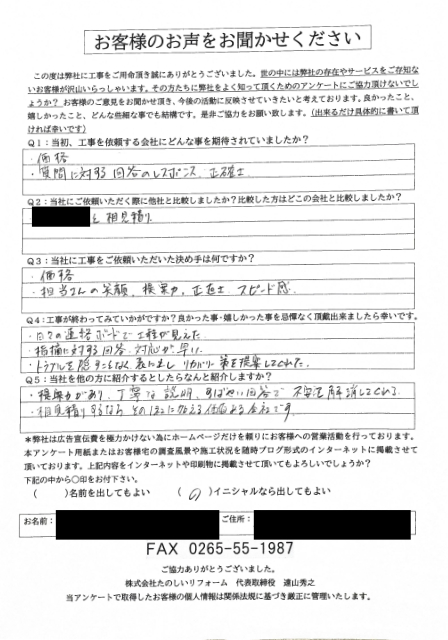 お客様のお声をお聞かせください
この度は弊社に工事をご用命頂き誠にありがとうございました。世の中には弊社の存在やサービスをご存知ない
お客様が沢山いらっしゃいます。その方たちに弊社をよく知って頂くためのアンケートにご協力頂けないでし
ょうか？お客様のご意見をお聞かせ頂き、今後の活動に反映させていきたいと考えております。良かったこと、
嬉しかったこと、どんな些細な事でも結構です。是非ご協力をお願い致します。（出来るだけ具体的に書いて頂
ければ幸いです）
Q1：当初、工事を依頼する会社にどんな事を期待されていましたか？
・価格
・質問に対する回答のレスポンス、正確さ
Q2：当社にご依頼いただく際に他社と比較しましたか？比較した方はどこの会社と比較しましたか？
と相見積り
Q3：当社に工事をご依頼いただいた決め手は何ですか？
・価格
・担当さんの笑顔、提案力、正直さ、スピード感
Q4：工事が終わってみていかがですか？良かった事・嬉しかった事を忌憚なく頂戴出来ましたら幸いです。
・日々の連絡ボードで工程が見えた
・指摘に対する回答、対応が早い
・トラブルを隠すことなく表に出し、リカバリー策を提案してくれた。
Q5：当社を他の方に紹介するとしたらなんと紹介しますか？
・提案力があり、丁寧な説明、すばやい回答で不安を解消してくれる
・相見積りするなら その1社に加える価値ある会社です
＊弊社は広告宣伝費を極力かけない為にホームページだけを頼りにお客様への営業活動を行っております。
本アンケート用紙またはお客様宅の調査風景や施工状況を随時ブログ形式のインターネットに掲載させて
頂いております。上記内容をインターネットや印刷物に掲載させて頂いてもよろしいでしょうか？
下記の中から○印をお付下さい。
（　）名前を出してもよい　（○）イニシャルなら出してもよい
お名前：　ご住所：
FAX 0265-55-1987
ご協力ありがとうございました。
株式会社たのしいリフォーム　代表取締役　遠山秀之
当アンケートで取得したお客様の個人情報は関係法規に基づき厳正に管理いたします。